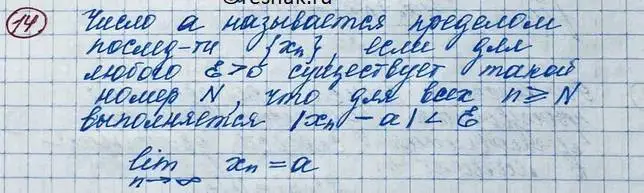 reshak.ru
14 Число a называется пределом
послед-ти {xₙ}, если для
любого ε>0 существует такой
номер N, что для всех n ≥ N
выполняется |xₙ - a| < ε
lim xₙ = a
n→∞